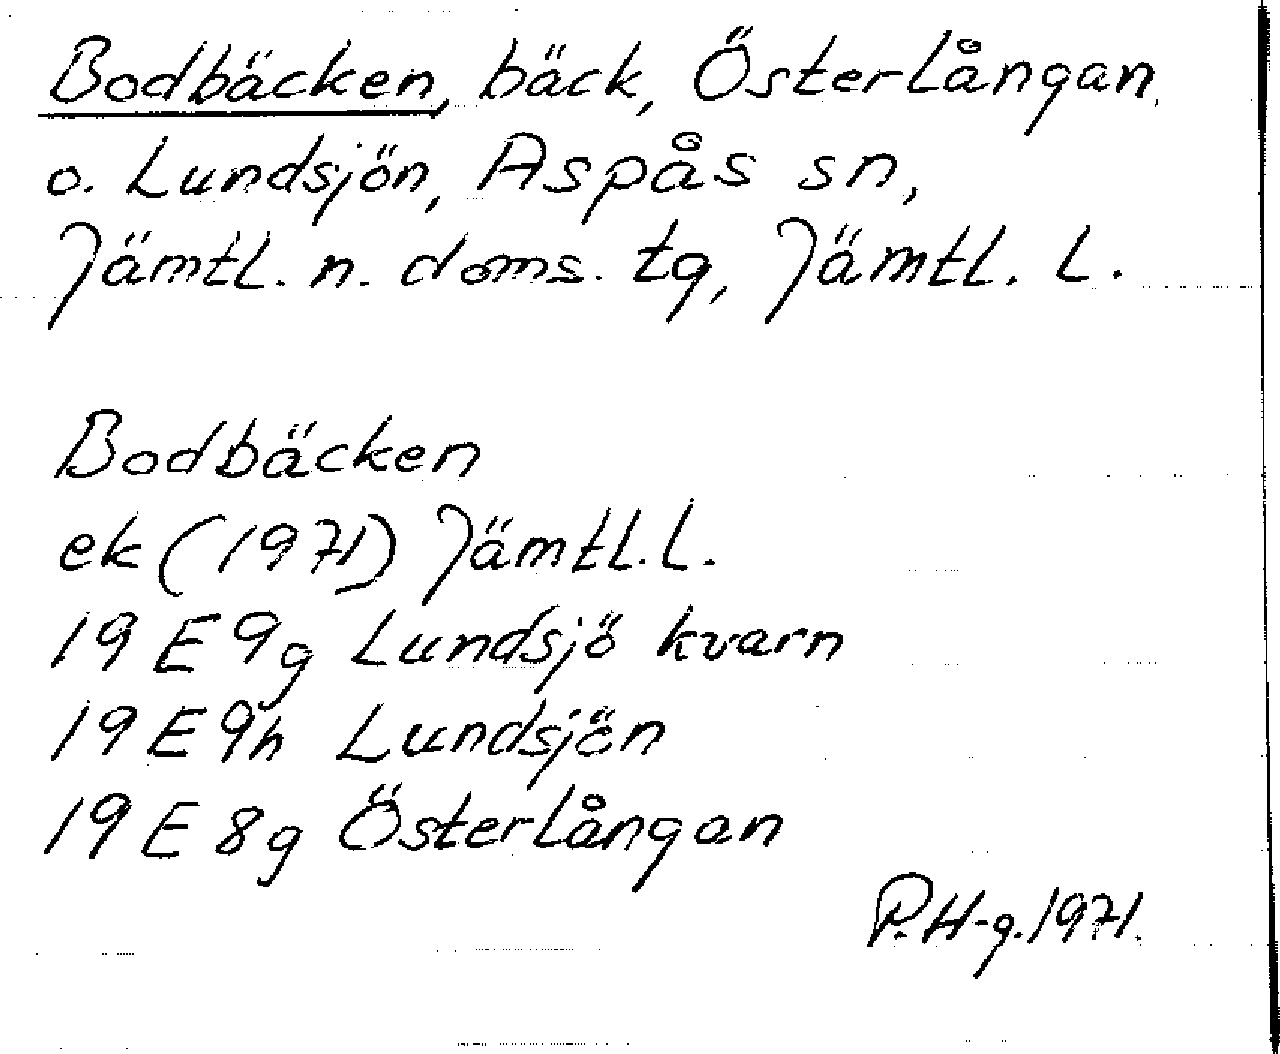 Bodbäcken, bäck, Österlångan
o. Lundsjön, Aspås sn,
Jämtl. n. doms. tg, Jämtl. L.
Bodbäcken
ek (1971) Jämtl. L.
19 E 9g Lundsjö kvarn
19 E 9h Lundsjön
19 E 8g Österlångan
P.H-g. 1971.